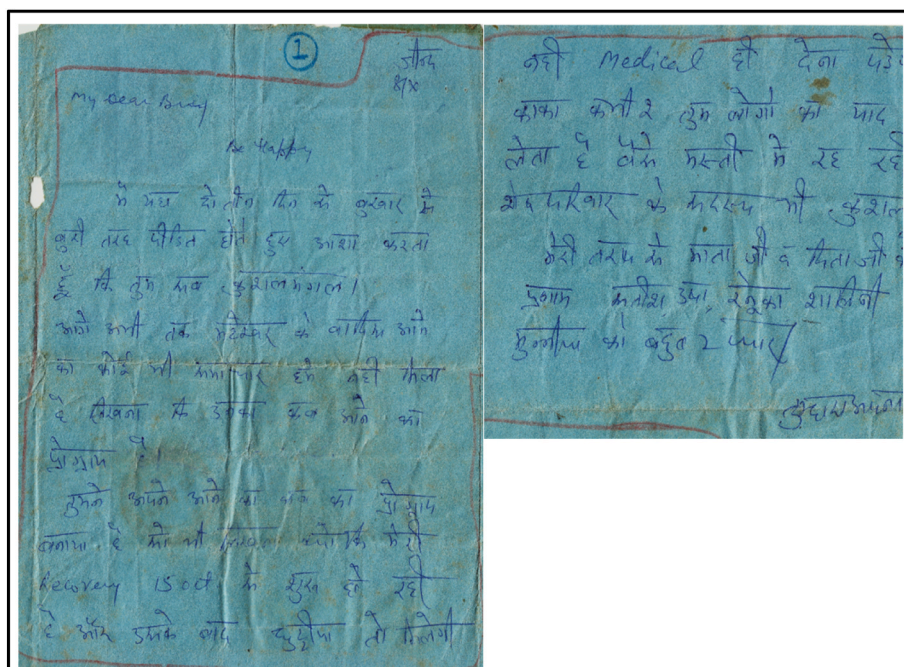 1
जीन्द
8/x
My Dear
Be Happy
मै यहा दो तीन दिन के बुखार से
बुरी तरह पीडित होते हुए आशा करता
हूँ कि तुम सब कुशलमंगल।
आगे अभी तक के वापिस आने
का कोई भी समाचार हमे नही मिला
है लिखना कि उनका कब आने का
प्रोग्राम है।
तुमने अपने आने का कब का प्रोग्राम
बनाया है सो भी लिखना क्योंकि मेरी
Recovery 15 oct से शुरू हो रही
है और उसके बाद छुट्टीया तो मिलेगी
नही Medical ही देना पडे
काका कभी २ तुम लोगो को याद
लेता है वैसे मस्ती मे रह रहे
शेष परिवार के सदस्य भी कुशल
मेरी तरफ से माता जी व पिता जी
प्रणाम सतीश उषा, रेनूका शालिनी
को बहुत २ प्यार
तुम्हारा